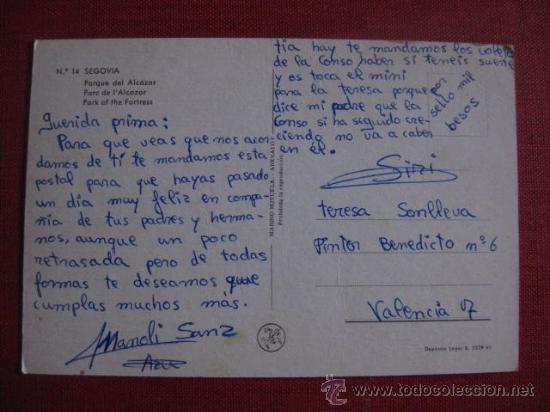 N.º 14 SEGOVIA
Parque del Alcázar
Parc de l'Alcazar
Park of the Fortress
Querida prima:
Para que veas que nos acor
damos de ti te mandamos esta
postal para que hayas pasado
un día muy feliz en compa
ñía de tus padres y herma
nos, aunque un poco
retrasada pero de todas
formas te deseamos que
cumplas muchos más.
Manoli Sanz
tia hay te mandamos los
de la Conso haber si teneis suerte
y os toca el mini
para la teresa porque
dice mi padre que la
Conso si ha seguido cre-
ciendo no va a caber
en él.
por
sello mil
besos
Siri
teresa Sonlleva
Pintor Benedicto nº 6
Valencia 07
Prohibida la reproducción
Depósito Legal B.
todocoleccion
© www.todocoleccion.net